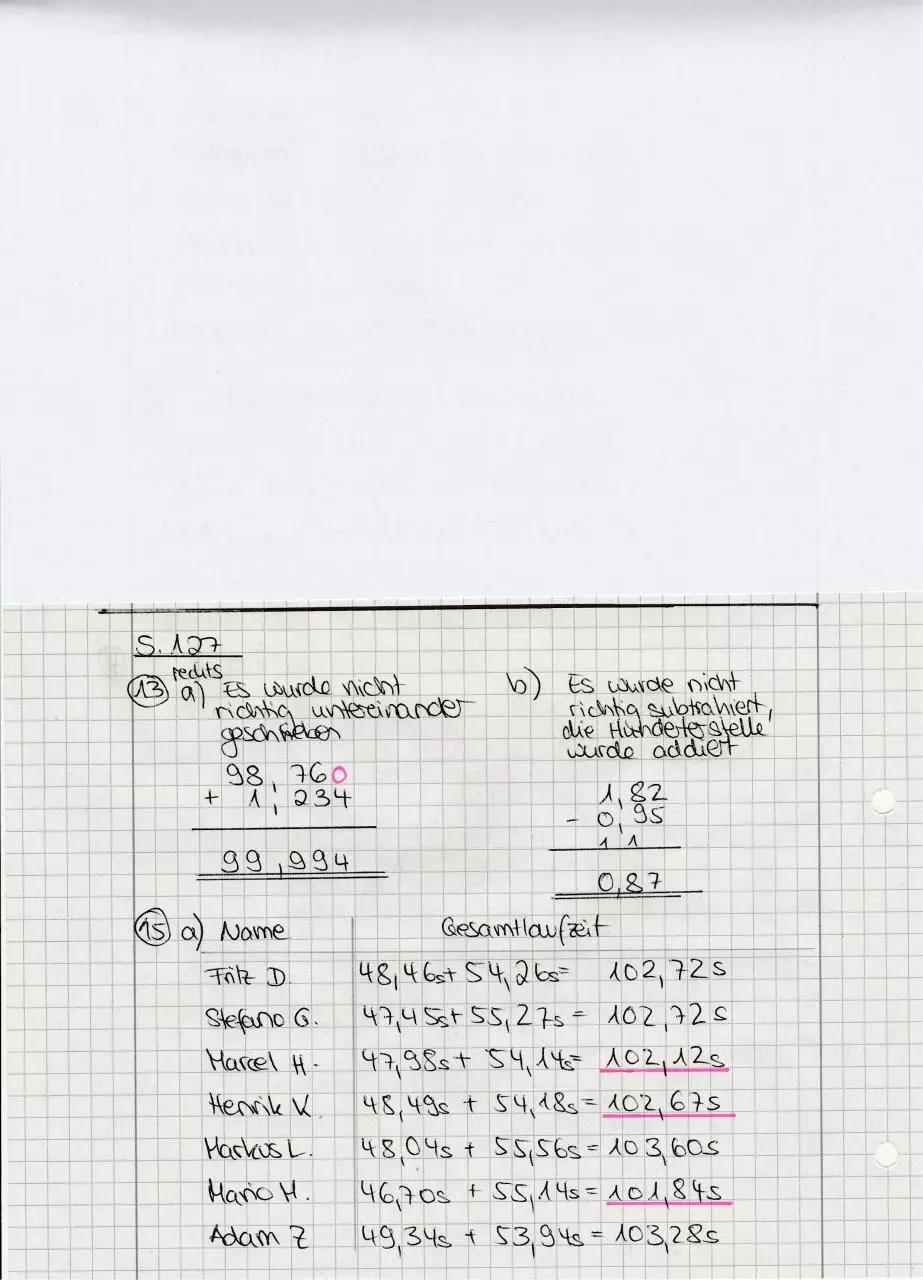 S. 127
rechts
13 a) Es wurde nicht
richtig untereinander
geschrieben
98,760
+ 1,234
99,994
b) Es wurde nicht
richtig subtrahiert,
die Hunderterstelle
wurde addiert
1,82
- 0,95
1 1
0,87
15 a) Name Gesamtlaufzeit
Fritz D. 48,46s + 54,26s = 102,72s
Stefano G. 47,45s + 55,27s = 102,72s
Marcel H. 47,98s + 54,14s = 102,12s
Henrik K. 48,49s + 54,18s = 102,67s
Markus L. 48,04s + 55,56s = 103,60s
Mario M. 46,70s + 55,14s = 101,84s
Adam Z 49,34s + 53,94s = 103,28s